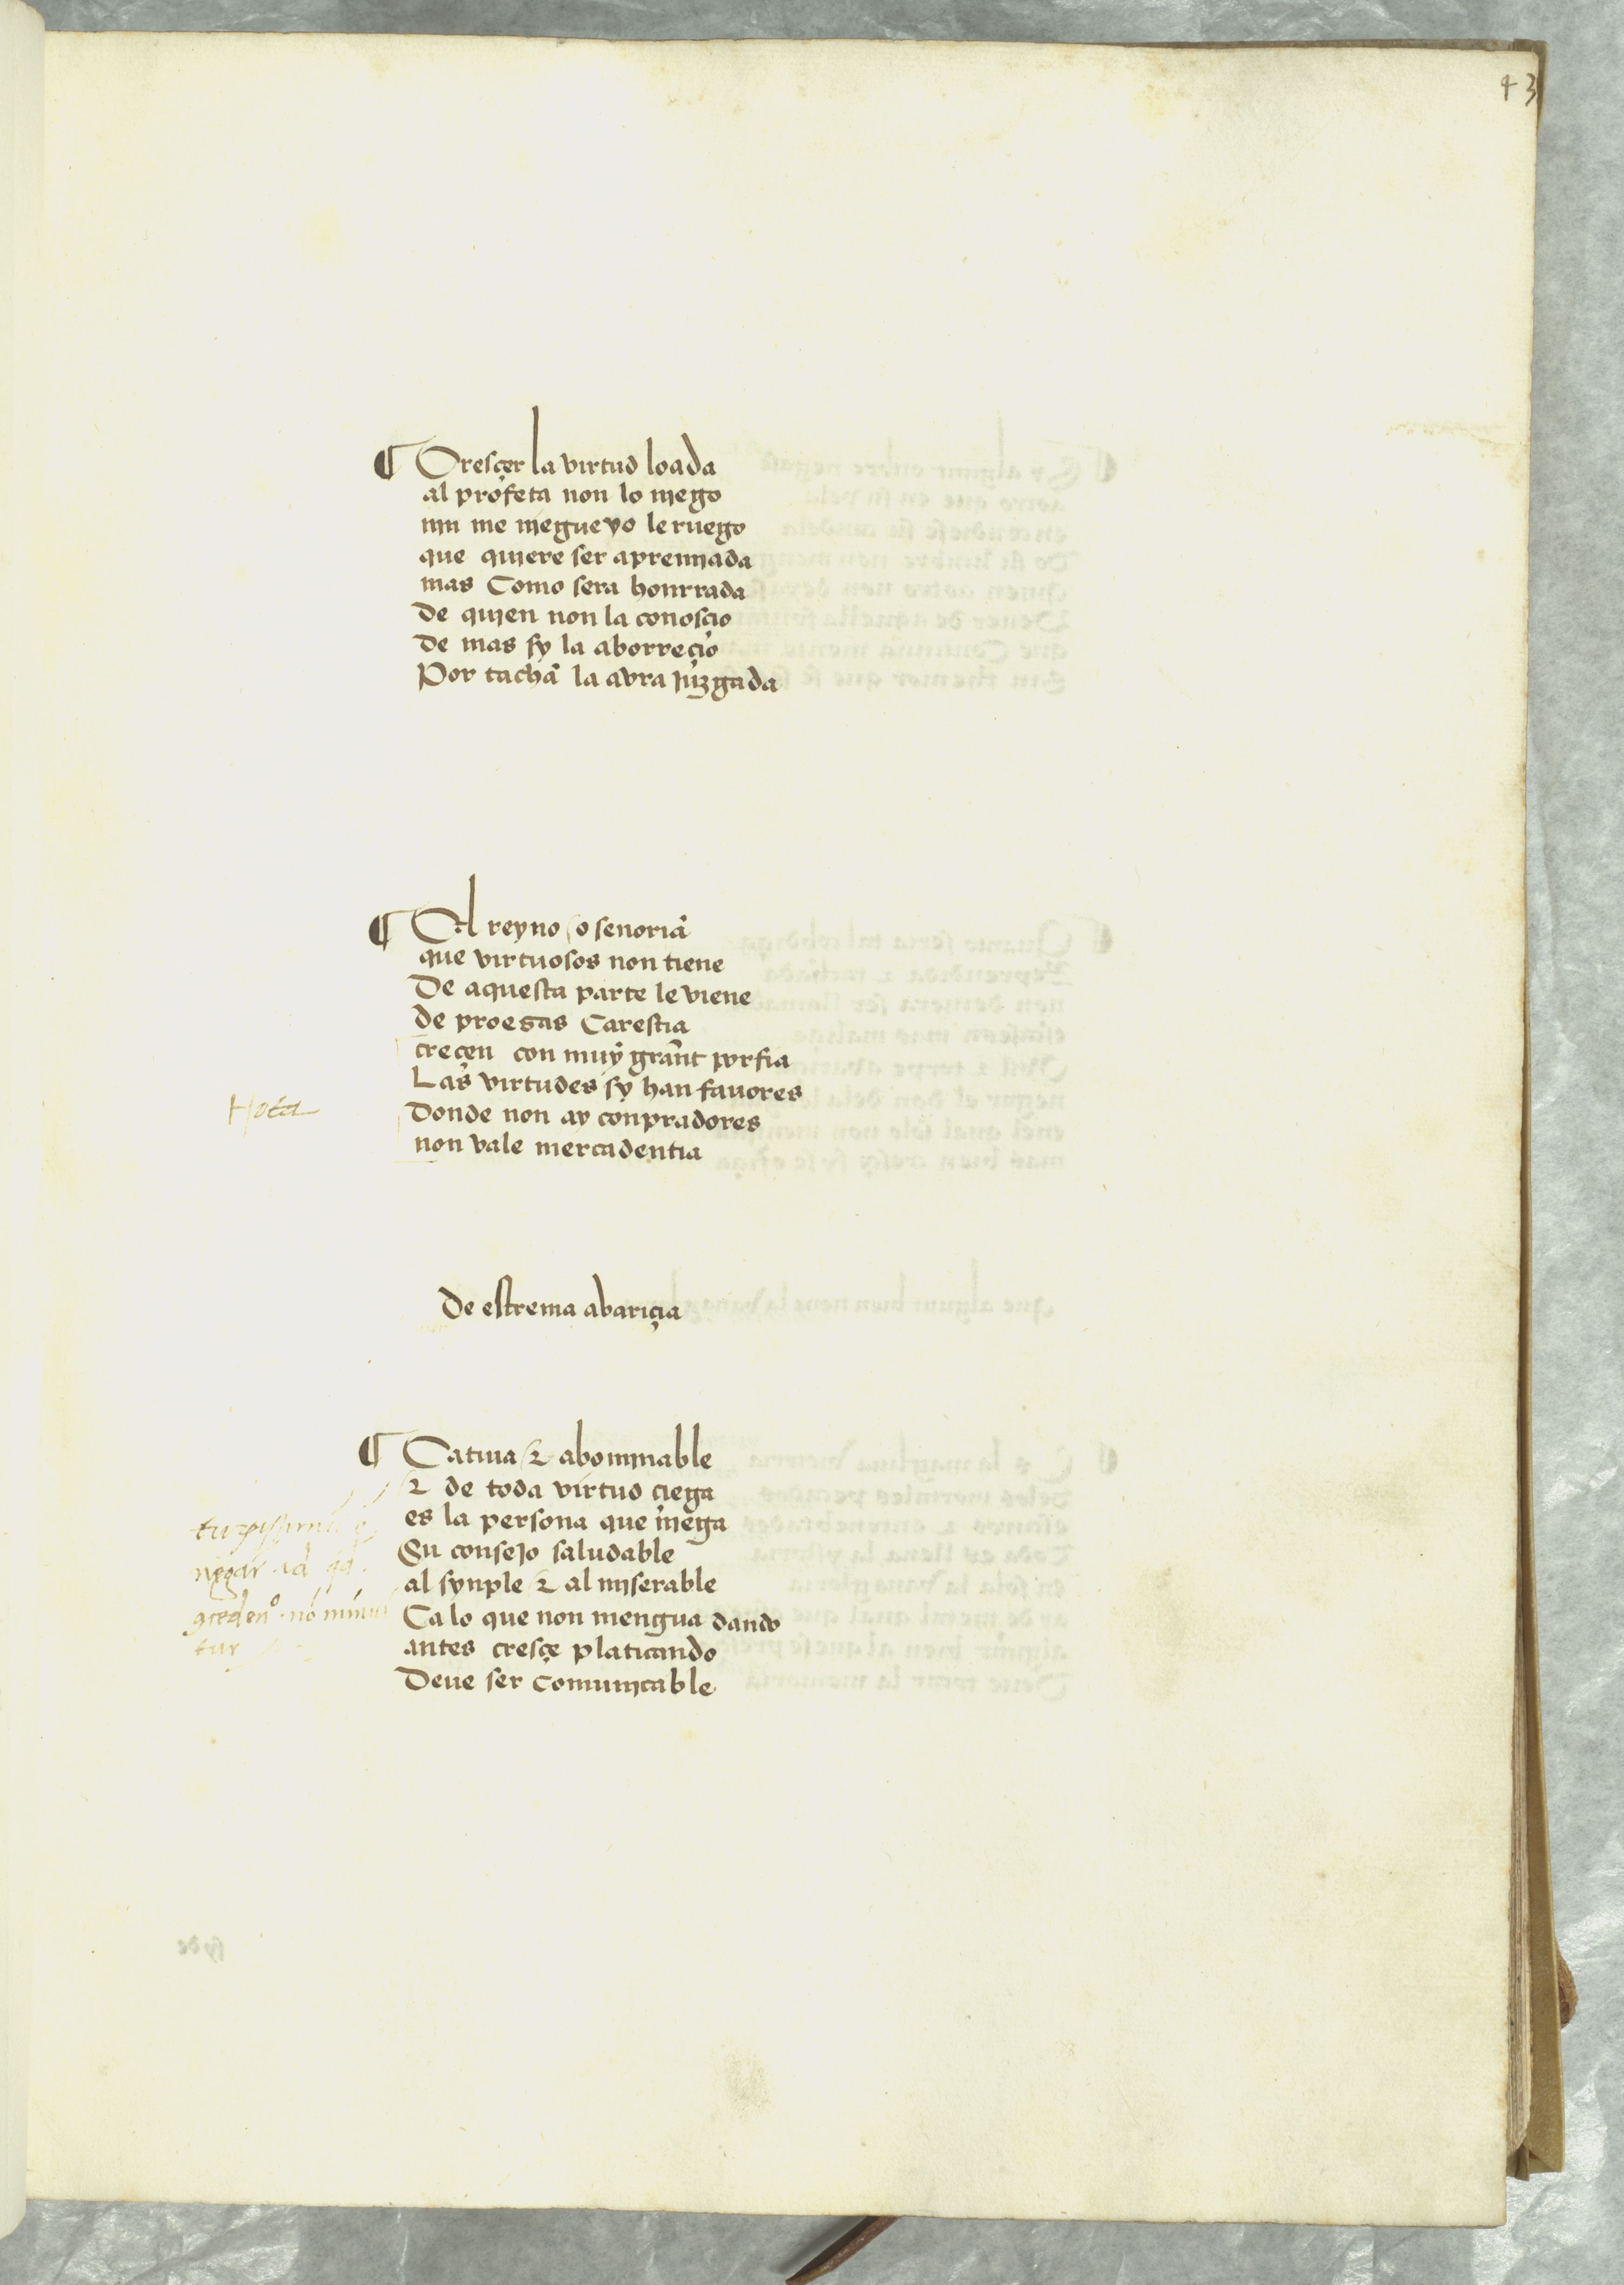 43
¶ Cresçer la virtud loada
al profeta non lo njego
nin me njegue yo le ruego
que qujere ser apremjada
mas Como sera honrrada
de qujen non la conosçio
de mas sy la aborreçio
Por tacha la avra juzgada
¶ El reyno o senoria
que virtuosos non tiene
De aquesta parte le viene
de proezas Carestia
creçen con muy grant porfia
Las virtudes sy han fauores
Nota
donde non ay conpradores
non vale mercadentia
De estrema abariçia
¶ Catiua & abomjnable
& de toda virtud çiega
es la persona que njega
Su consejo saludable
al synple & al mjserable
Ca lo que non mengua dando
antes cresçe platicando
Deue ser Comunjcable
turpissimu e
negar id qd
tur